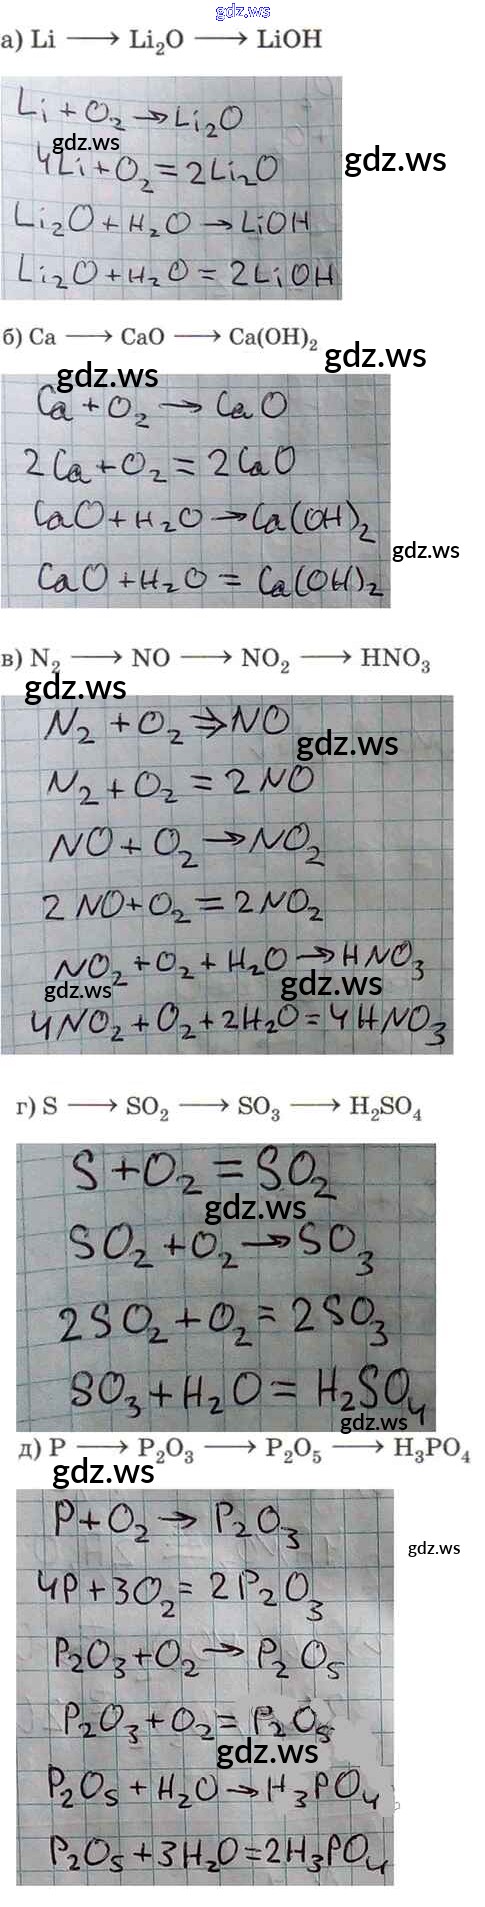 gdz.ws
а) Li ⟶ Li₂O ⟶ LiOH
Li + O₂ → Li₂O
gdz.ws
gdz.ws
4Li + O₂ = 2Li₂O
Li₂O + H₂O → LiOH
Li₂O + H₂O = 2LiOH
б) Ca ⟶ CaO ⟶ Ca(OH)₂
gdz.ws
gdz.ws
Ca + O₂ → CaO
2Ca + O₂ = 2CaO
CaO + H₂O → Ca(OH)₂
gdz.ws
CaO + H₂O = Ca(OH)₂
в) N₂ ⟶ NO ⟶ NO₂ ⟶ HNO₃
gdz.ws
N₂ + O₂ → NO
gdz.ws
N₂ + O₂ = 2NO
NO + O₂ → NO₂
2NO + O₂ = 2NO₂
NO₂ + O₂ + H₂O → HNO₃
gdz.ws
gdz.ws
4NO₂ + O₂ + 2H₂O = 4HNO₃
г) S ⟶ SO₂ ⟶ SO₃ ⟶ H₂SO₄
S + O₂ = SO₂
gdz.ws
SO₂ + O₂ → SO₃
2SO₂ + O₂ = 2SO₃
SO₃ + H₂O = H₂SO₄
gdz.ws
д) P ⟶ P₂O₃ ⟶ P₂O₅ ⟶ H₃PO₄
gdz.ws
P + O₂ → P₂O₃
gdz.ws
4P + 3O₂ = 2P₂O₃
P₂O₃ + O₂ → P₂O₅
P₂O₃ + O₂ = P₂O₅
gdz.ws
P₂O₅ + H₂O → H₃PO₄
P₂O₅ + 3H₂O = 2H₃PO₄